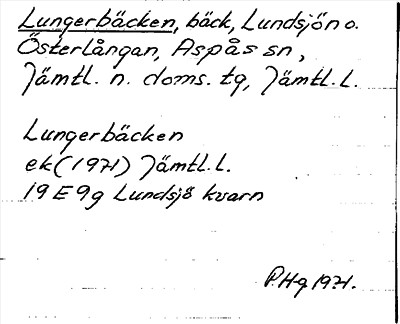 Lungerbäcken, bäck, Lundsjön o.
Österlångan, Aspås sn,
Jämtl. n. doms. tg, Jämtl. l.
Lungerbäcken
ek (1971) Jämtl. l.
19E9g Lundsjö kvarn
P.Hg 1971.